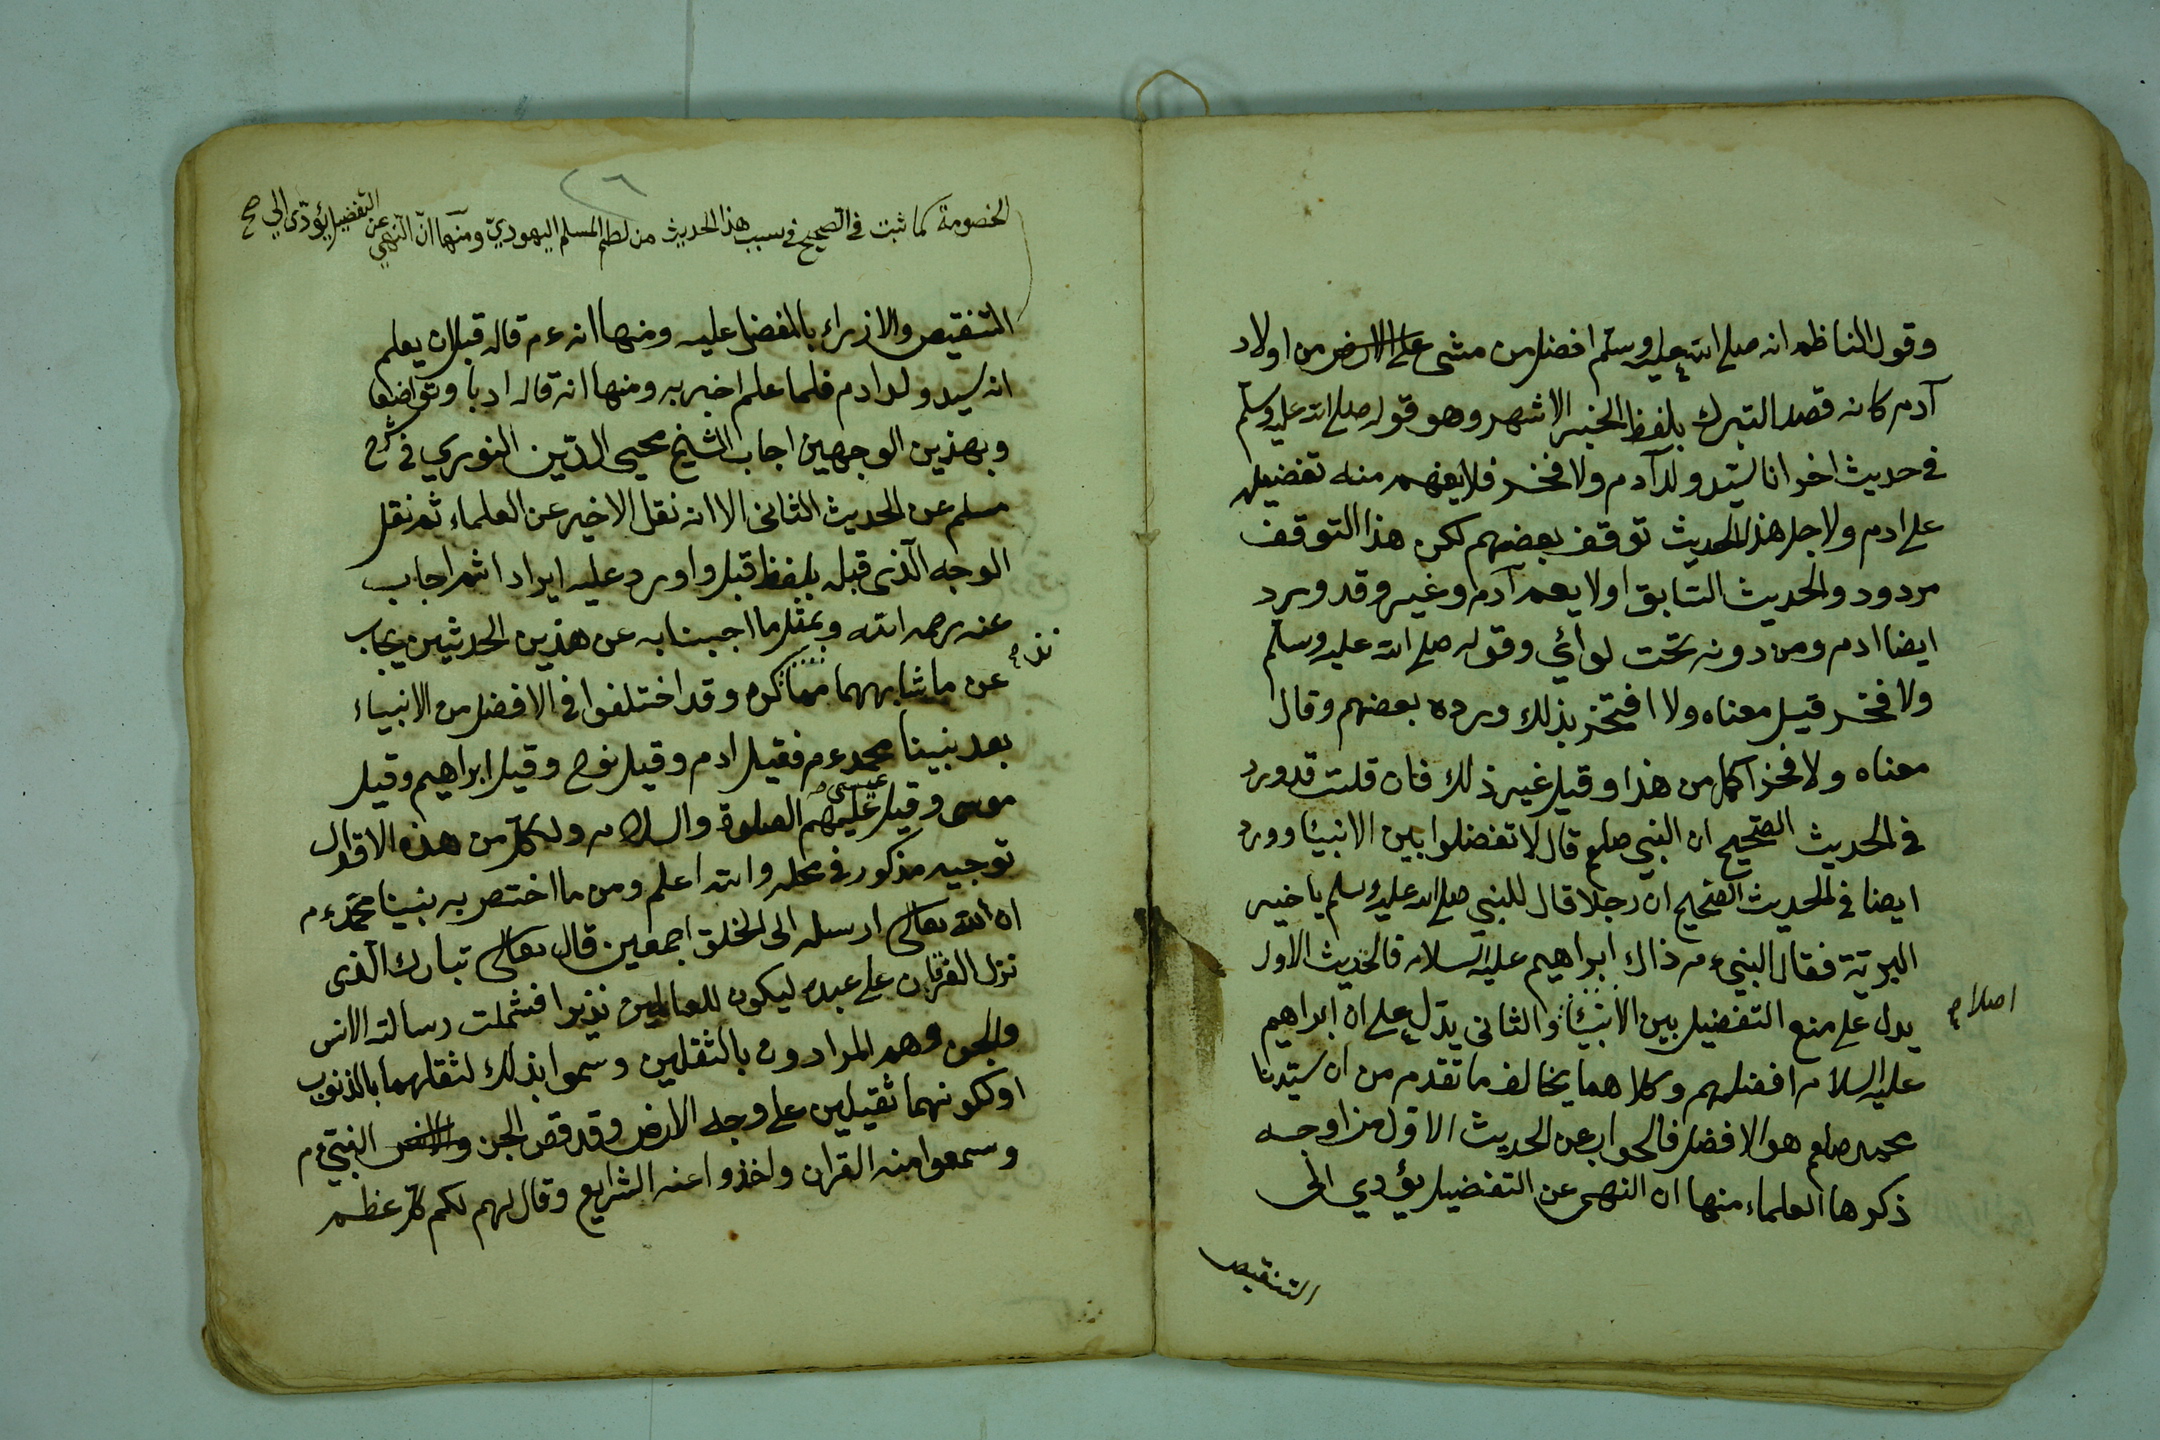 وقول الناظم انه صلى الله عليه وسلم افضل من مشى على الارض من اولاد
آدم كانه قصد التبرك بلفظ الخبر الاشهر وهو قوله صلى الله عليه وسلم
في حديث اخر انا سيد ولد آدم ولا فخر فلا يفهم منه تفضيله
على ادم ولاجل هذا الحديث توقف بعضهم لكن هذا التوقف
مردود والحديث السابق اولا يعم آدم وغيره وقد ورد
ايضا ادم ومن دونه تحت لوائي وقوله صلى الله عليه وسلم
ولا فخر قيل معناه ولا افتخر بذلك ورده بعضهم وقال
معناه ولا فخر اكمل من هذا وقيل غير ذلك فان قلت قد ورد
في الحديث الصحيح ان النبي صلعم قال لا تفضلوا بين الانبيا وورد
ايضا في الحديث الصحيح ان رجلا قال للنبي صلى الله عليه وسلم يا خير
البرية فقال النبي ءم ذاك ابراهيم عليه السلام فالحديث الاول
يدل على منع التفضيل بين الانبيا والثاني يدل على ان ابراهيم
اصلاح
عليه السلام افضلهم وكلاهما يخالف ما تقدم من ان سيدنا
محمد صلعم هو الافضل فالجواب عن الحديث الاول من اوجه
ذكرها العلماء منها ان النهي عن التفضيل يؤدي الى
التنقيص
٢٦
الخصومة كما ثبت في الصحيح في سبب هذا الحديث من لطم المسلم اليهودي ومنها ان النهي عن التفضيل يؤدي الى صح
التنقيص والازراء بالمفضل عليه ومنها انه ءم قاله قبل ان يعلم
انه سيد ولد ادم فلما علم اخبر به ومنها انه قاله ادبا وتواضعا
وبهذين الوجهين اجاب الشيخ محيي الدين النوري في شرح
مسلم عن الحديث الثاني الا انه نقل الاخير عن العلماء ثم نقل
الوجه الذي قبله بلفظ قيل واورد عليه ايرادا ثم اجاب
عنه رحمه الله وبمثل ما اجبنا به عن هذين الحديثين يجاب
عن ما شابههما مما كره وقد اختلفوا في الافضل من الانبياء
بعد نبينا محمد ءم فقيل ادم وقيل نوح وقيل ابراهيم وقيل
موسى وقيل عيسى عليهم الصلوة والسلام ولكل من هذه الاقوال
توجيه مذكور في محله والله اعلم ومن ما اختص به نبينا محمد ءم
ان الله تعالى ارسله الى الخلق اجمعين قال تعالى تبارك الذي
نزل الفرقان على عبده ليكون للعالمين نذيرا فشملت رسالته الانس
والجن وهم المرادون بالثقلين وسموا بذلك لثقلهما بالذنوب
او لكونهما ثقيلين على وجه الارض وقد قص الجن والانس النبي ءم
وسمعوا منه القران واخذوا عنه الشرايع وقال لهم لكم كل عظم